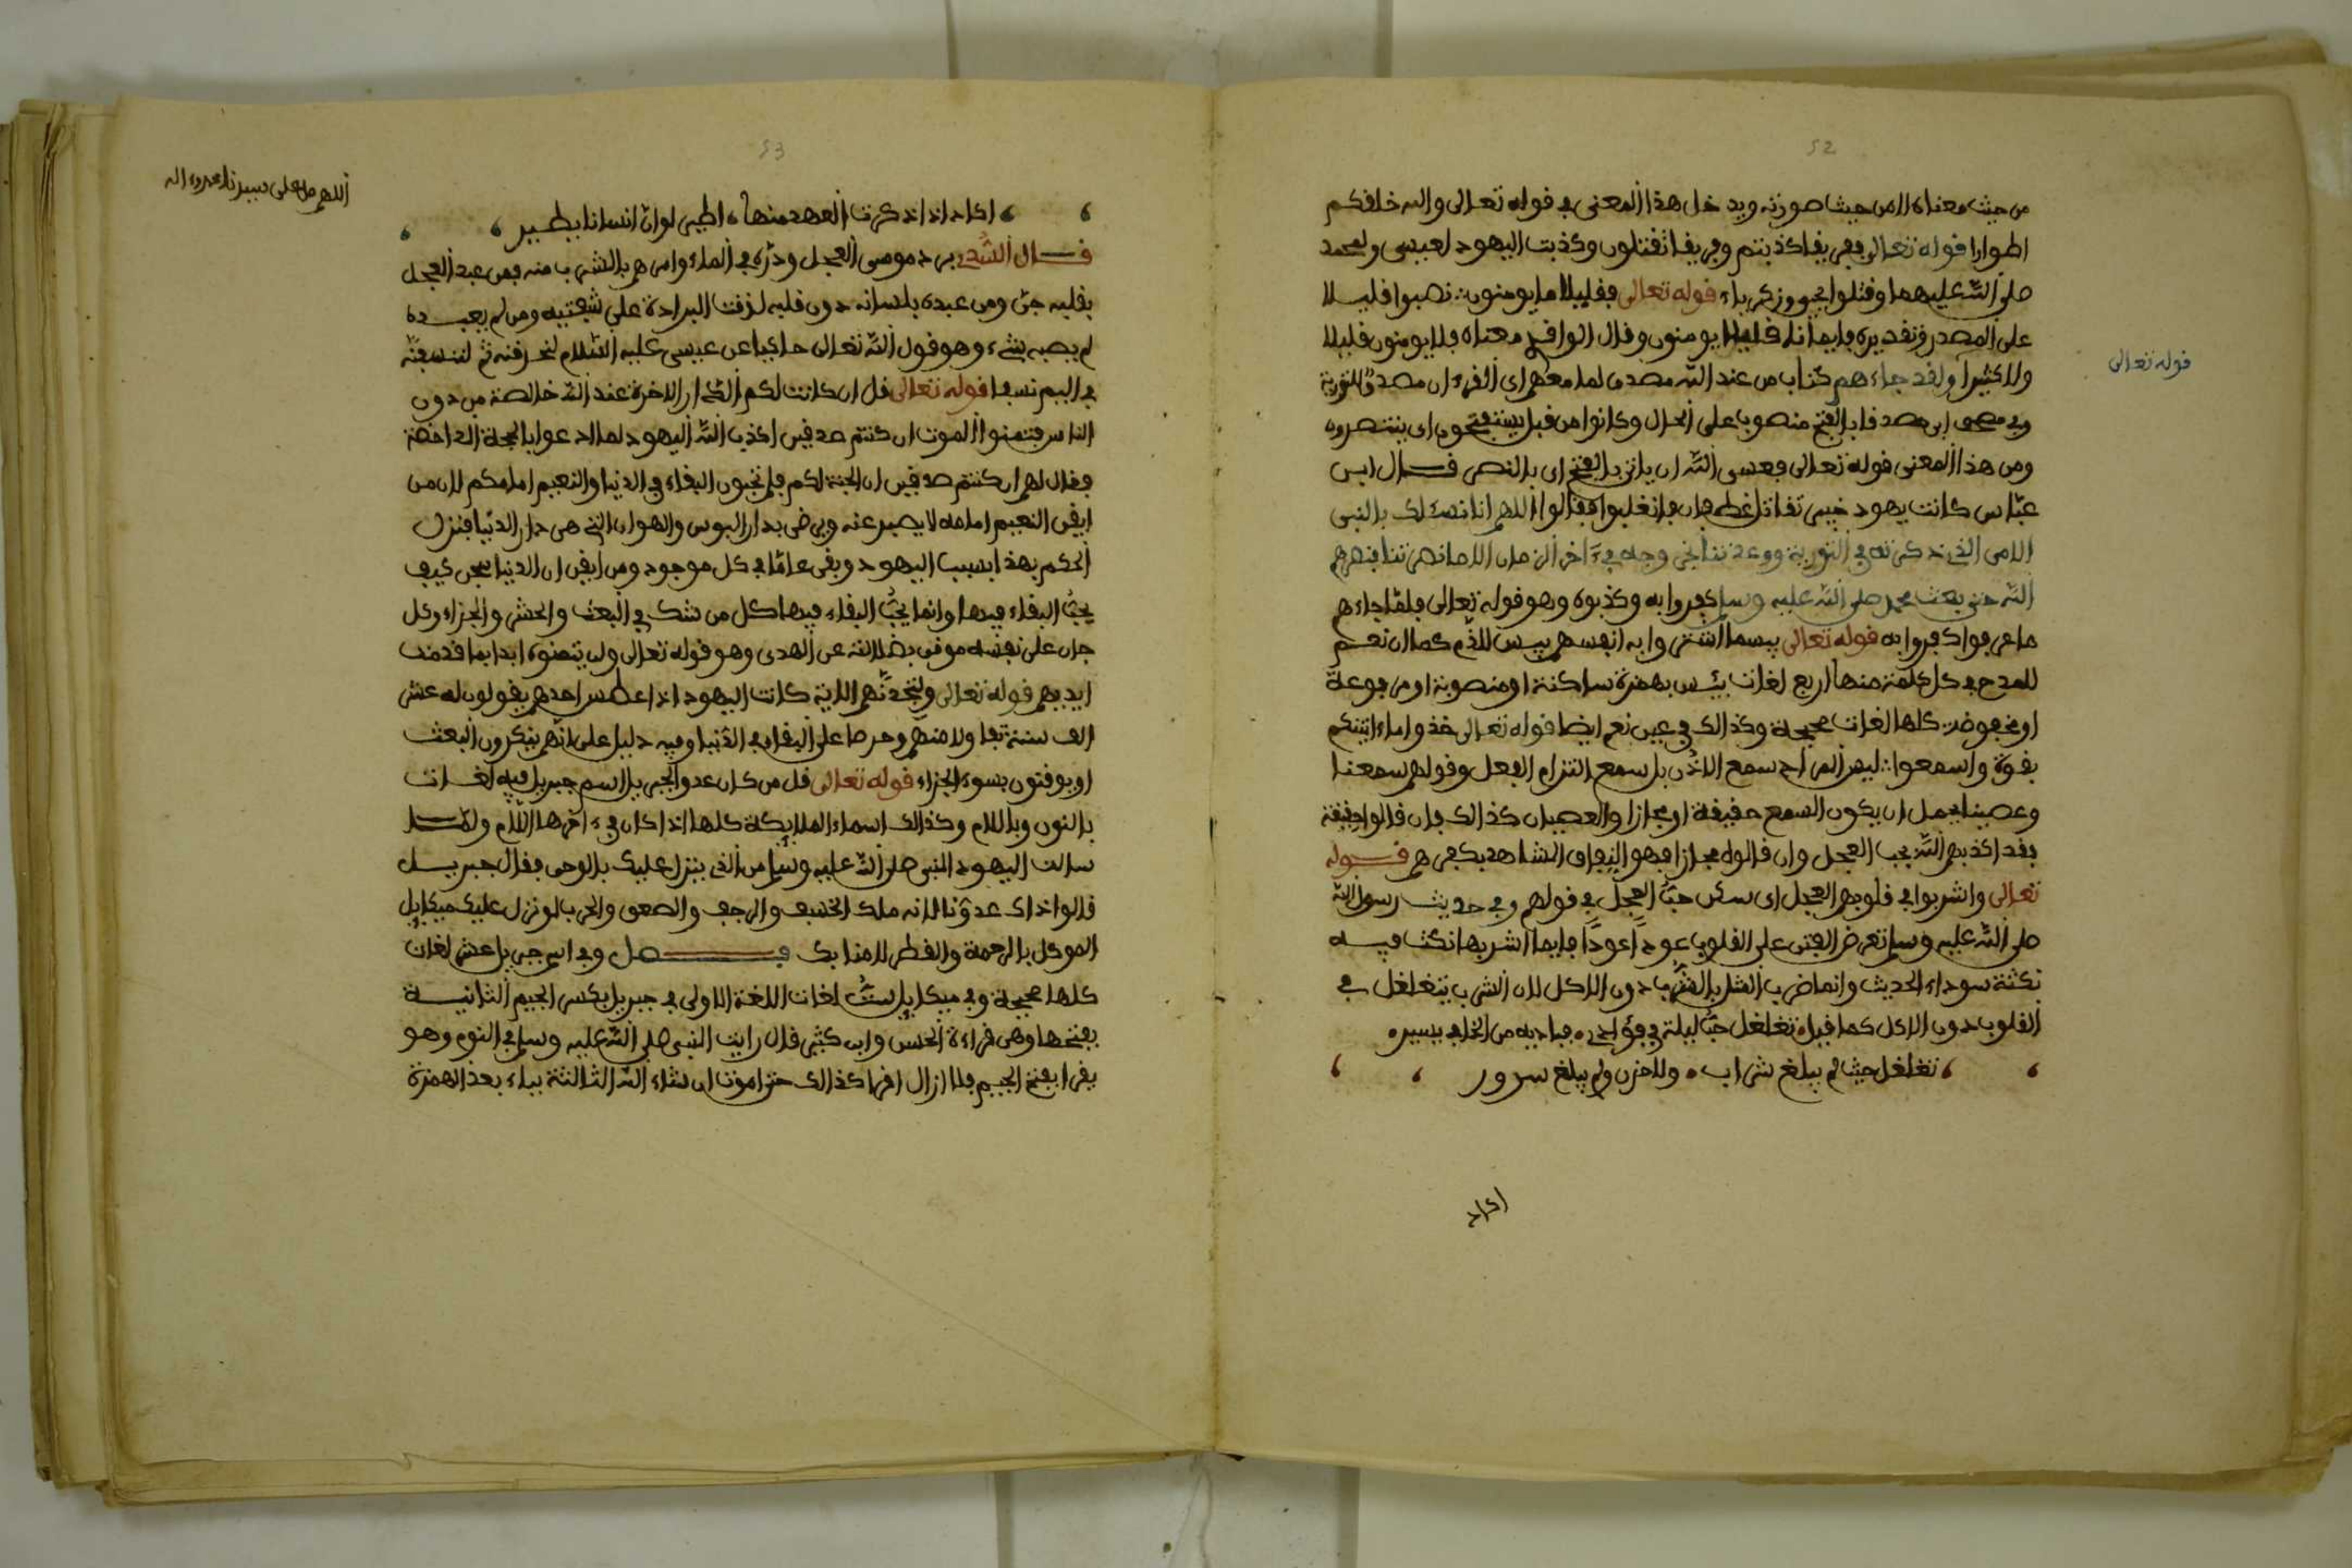 52
من حيث معناه لا من حيث صورته ويدخل هذا المعنى في قوله تعالى والله خلقكم
اطوارا قوله تعالى ففريقا كذبتم وفريقا تقتلون وكذبت اليهود لعيسى ولمحمد
صلى الله عليهما وقتلوا يحيى وزكرياء قوله تعالى فقليلا ما يومنون نصبوا قليلا
على المصدر وتقديره فايمانا قليلا يومنون وقال الواقدي معناه فلا يومنون قليلا
ولا كثيرا ولقد جاءهم كتاب من عند الله مصدق لما معهم اى القرءان مصدق للتورية
قوله تعالى
وفي مصحف ابي مصدقا بالفتح منصوبا على الحال وكانوا من قبل يستفتحون اى ينتصرون
ومن هذا المعنى قوله تعالى فعسى الله ان ياتي بالفتح اى بالنصر قال ابن
عباس كانت يهود خيبر تقاتل غطفان فانغلبوا فقالوا اللهم انا نسئلك بالنبى
الامى الذي ذكرته في التورية ووعدتنا بخروجه في ءاخر الزمان الا ما نصرتنا فنصرهم
الله حتى بعث محمد صلى الله عليه وسلم كفروا به وكذبوه وهو قوله تعالى فلما جاءهم
ما عرفوا كفروا به قوله تعالى بيسما اشتروا به انفسهم بيس للذم كما ان نعم
للمدح في كل كلمة منها اربع لغات بئس بهمزة ساكنة او منصوبة او مرفوعة
او مخفوضة كلها لغات صحيحة وكذالك في عين نعم ايضا قوله تعالى خذوا ما ءاتينكم
بقوة واسمعوا ليس المراد سمع الاذن بل سمع التزام الفعل وقولهم سمعنا
وعصينا يحمل ان يكون السمع حقيقة او مجازا والعصيان كذالك فان قالوا حقيقة
فقد اكذبهم الله بحب العجل وان قالوه مجازا فهو النفاق الشاهد بكفرهم قوله
تعالى واشربوا في قلوبهم العجل اى سكن حب العجل في قولهم وفي حديث رسول الله
صلى الله عليه وسلم تعرض الفتن على القلوب عودا عودا فايما اشربها نكثت فيه
نكتة سوداء الحديث وانما ضرب المثل بالشرب دون الاكل لان الشرب يتغلغل في
القلوب دون الاكل كما قيل تغلغل حب ليلة في فؤادي فباديه من الخافي يسير
تغلغل حيث لم يبلغ شراب ولا حزن ولم يبلغ سرور
اكاد
53
اللهم صل على سيدنا محمد وءاله
اكاد اذا ذكرت العهد منها اطير لو ان انسانا يطير
قال السدي برد موسى العجل وذره في الماء وامرهم بالشرب منه فمن عبد العجل
بقلبه جن ومن عبده بلسانه دون قلبه لزقت البرادة على شفتيه ومن لم يعبده
لم يصبه شيء وهو قول الله تعالى حاكيا عن عيسى عليه السلام لنحرقنه ثم لننسفنه
في اليم نسفا قوله تعالى قل ان كانت لكم الدار الاخرة عند الله خالصة من دون
الناس فتمنوا الموت ان كنتم صدقين اكذب الله اليهود لما ادعوا بالحجة الداحضة
فقال لهم ان كنتم صدقين ان الجنة لكم فلم تحبون البقاء في الدنيا والنعيم امامكم لان من
ايقن النعيم امامه لا يصبر عنه ويرضى بدار البوس والهوان التي هي دار الدنيا فنزل
الحكم بهذا بسبب اليهود وبقى عاما في كل موجود ومن ايقن ان الدنيا سجن كيف
يحب البقاء فيها وانما يحب البقاء فيها كل من شك في البعث والحشر والجزاء وكل
جان على نفسه موقن بضلالته عن الهدى وهو قوله تعالى ولن يتمنوه ابدا بما قدمت
ايديهم قوله تعالى ولتجدنهم الاية كانت اليهود اذا عطس احدهم يقولون له عش
الف سنة تفاولا منهم وحرصا على البقاء في الدنيا وفيه دليل على انهم ينكرون البعث
او يوقنون بسوء الجزاء قوله تعالى قل من كان عدوا لجبريل اسم جبريل فيه لغات
بالنون وباللام وكذالك اسماء الملائكة كلها اذا كان في ءاخرها اللام ولما
سالت اليهود النبى صلى الله عليه وسلم من الذي ينزل عليك بالوحى فقال جبريل
قالوا ذاك عدونا لانه ملك الخسف والرجف والصعق والحرب لو نزل عليك ميكايل
الموكل بالرحمة والقطر لامنا بك فصل وفي اسم جبريل عشر لغات
كلها صحيحة وفي ميكايل ست لغات اللغة الاولى في جبريل بكسر الجيم الثانية
بفتحها وهي قراءة الحسن وابن كثير قال رايت النبى صلى الله عليه وسلم في النوم وهو
يقرا بفتح الجيم فلا ازال اقرا كذالك حتى اموت ان شاء الله الثالثة بياء بعد الهمزة